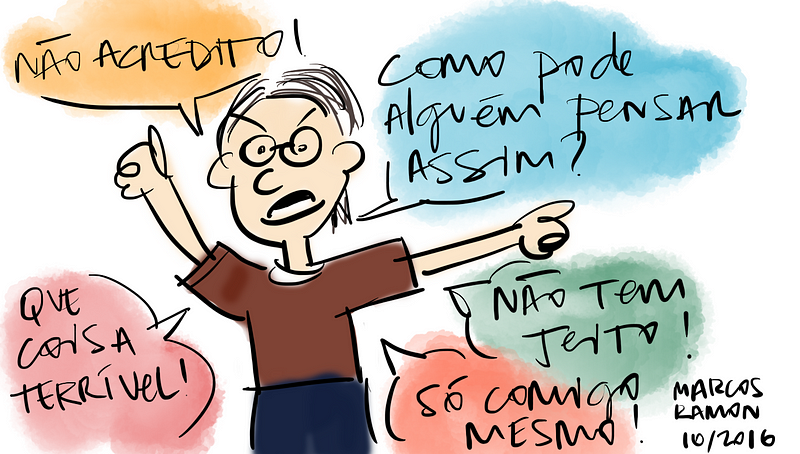 NÃO ACREDITO!
COMO pode
Alguém PENSAR
ASSIM?
QUE
COISA
TERRÍVEL!
NÃO TEM
JEITO!
SÓ COMIGO
MESMO!
MARCOS
RAMON
10/2016